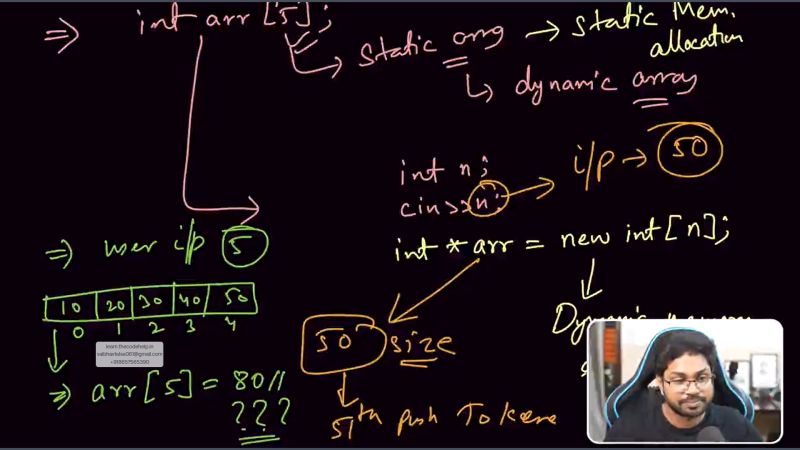 ⇒ int arr [5];
→ static array → static Mem. allocation
↳ dynamic array
int n;
cin>>n; → i/p → 50
int * arr = new int[n];
Dynamic memory
⇒ user i/p 5
10 20 30 40 50
0 1 2 3 4
learn.thecodehelp.in
⇒ arr[5] = 80//
???
50 size
51th push To karna